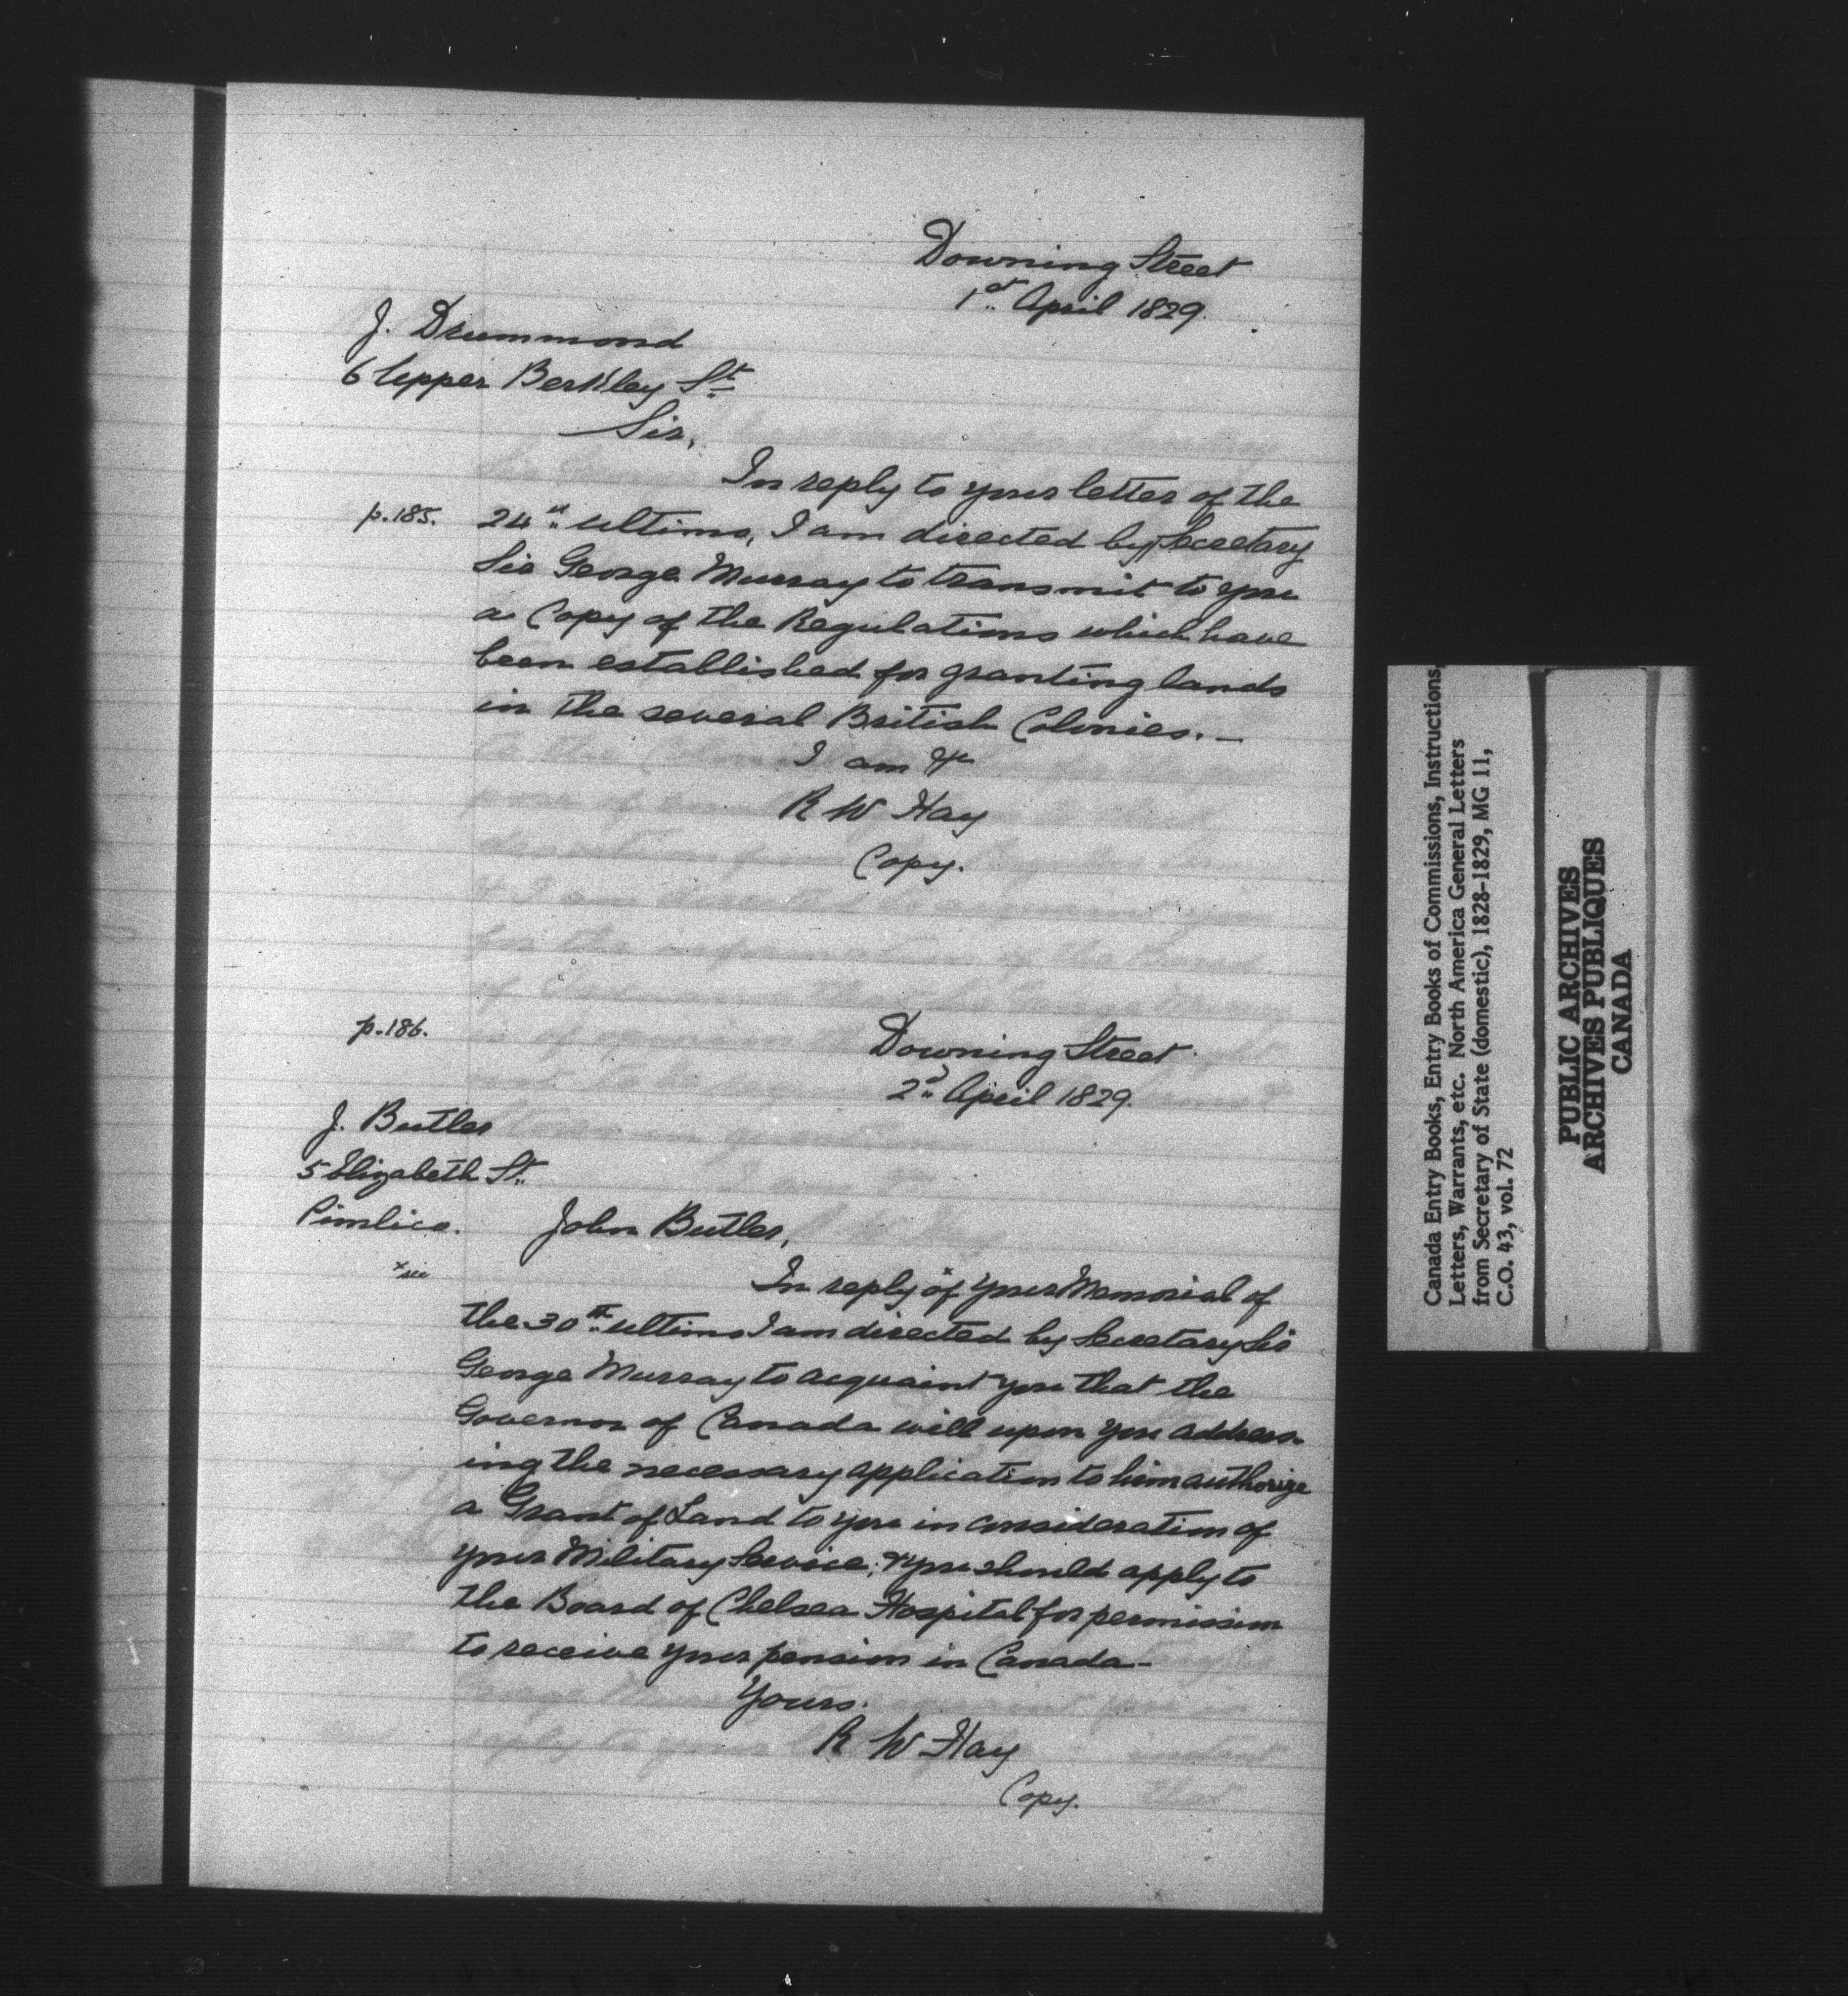 Downing Street
1st April 1829.
J. Drummond
6 Upper Berkley St.
Sir,
In reply to your letter of the
p.185. 24th ultimo, I am directed by Secretary
Sir George Murray to transmit to you
a Copy of the Regulations which have
been established for granting lands
in the several British Colonies. —
I am &c
R W Hay
Copy.
p.186.
Downing Street.
2d April 1829.
J. Butler
5 Elizabeth St.
Pimlico.
John Butler,
x sic
In reply of x your Memorial of
the 30th ultimo I am directed by Secretary Sir
George Murray to acquaint you that the
Governor of Canada will upon you address-
ing the necessary application to him authorize
a Grant of Land to you in consideration of
your Military Service; & you should apply to
the Board of Chelsea Hospital for permission
to receive your pension in Canada —
Yours.
R W Hay
Copy.
Canada Entry Books, Entry Books of Commissions, Instructions,
Letters, Warrants, etc. North America General Letters
from Secretary of State (domestic), 1828-1829, MG 11,
C.O. 43, vol. 72
PUBLIC ARCHIVES
ARCHIVES PUBLIQUES
CANADA